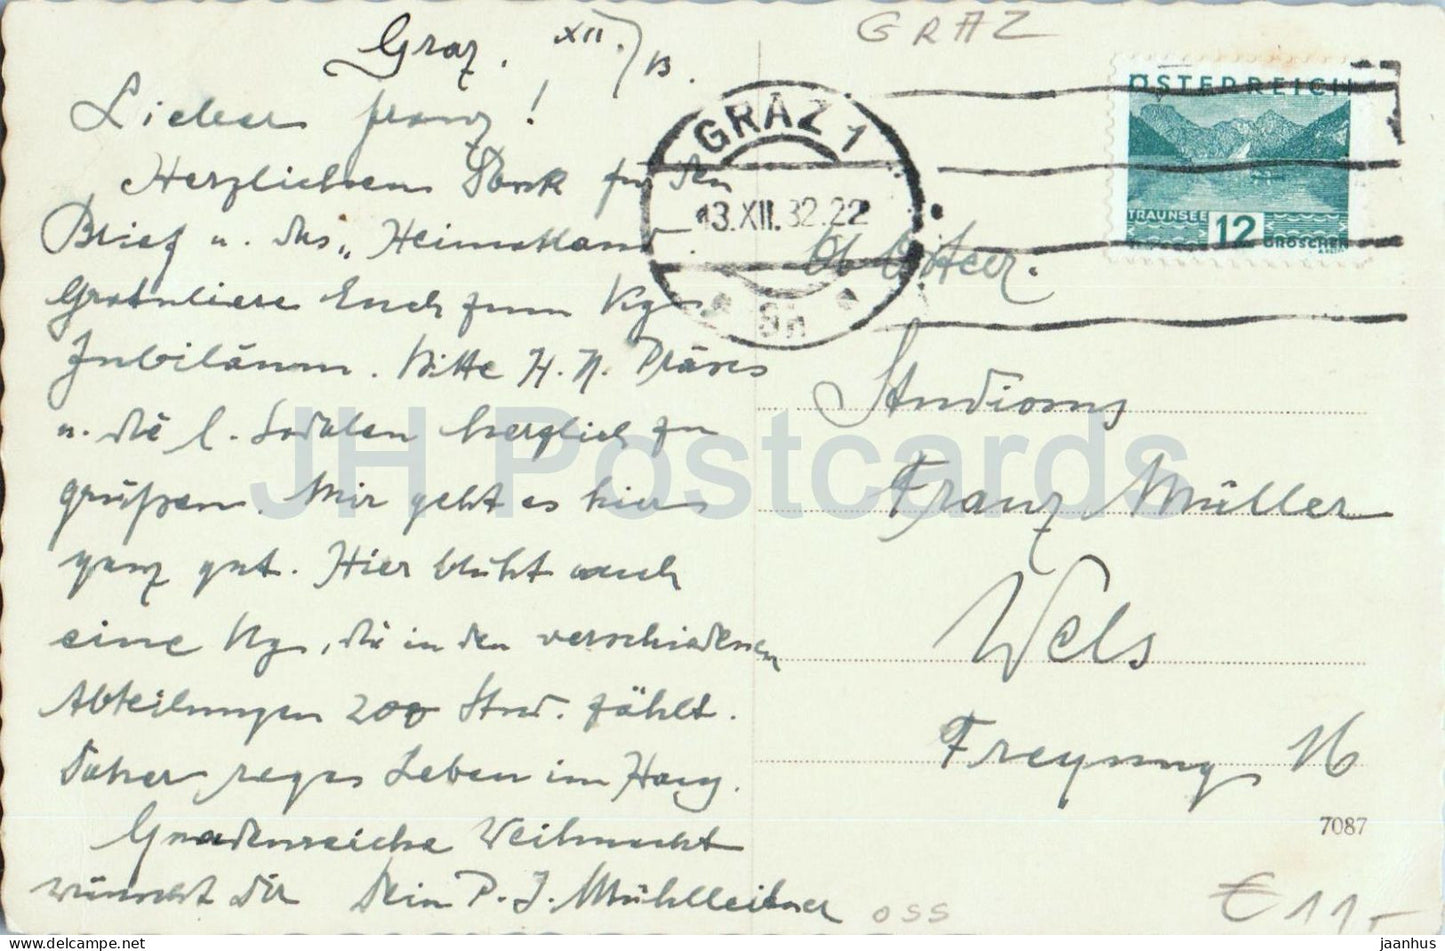 Graz, XII./13.
GRAZ
Lieber Franz!
Herzlichsten Dank für den
Brief u. das „Heimatland".
Gratuliere Euch zum Kg
Jubiläum. Bitte H. H. Präses
u. die l. Sodalen herzlich zu
grüßen. Mir geht es hier
ganz gut. Hier blüht auch
eine Kg, die in den verschiedenen
Abteilungen 200 Stud. zählt.
Daher reges Leben im Haus.
Gnadenreiche Weihnacht
wünscht Dir Dein P. J. Mühlleitner
OSS
GRAZ 1
13.XII.32.22
ÖSTERREICH
TRAUNSEE
12
GROSCHEN
Ob. Öster.
Studiosus
Franz Müller
Wels
Freyung 16
7087
€ 11,-
JH Postcards
jaanhus | delcampe.net